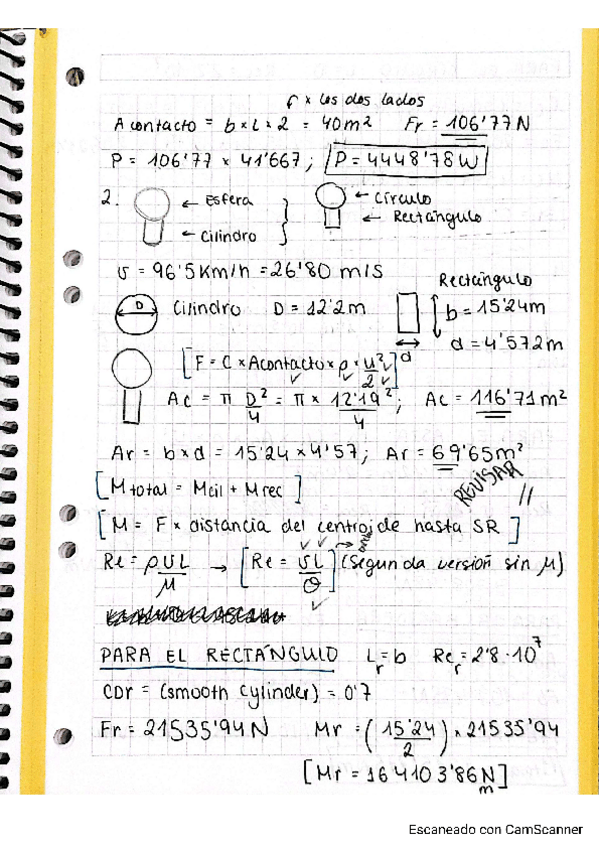 r x los dos lados
A contacto = b × L × 2 = 40 m² Fr = 106'77 N
P = 106'77 × 41'667 ; P = 4448'78 W
2. ← Esfera ← Círculo
← Cilindro ← Rectángulo
v = 96'5 Km/h = 26'80 m/s
Rectángulo
D Cilindro D = 12'2 m b = 15'24 m
d = 4'572 m
d
[F = C × Acontacto × ρ × u²/2]
Ac = π D²/4 = π × 12'19²/4 ; Ac = 116'71 m²
Ar = b × d = 15'24 × 4'57 ; Ar = 69'65 m²
REVISAR
[M total = M cil + M rec]
[M = F × distancia del centroide hasta SR]
Re = ρUL/μ → [Re = UL/θ] (Segunda versión sin μ)
PARA EL RECTÁNGULO Lr = b Rer = 2'8 · 10⁷
CDr = (smooth cylinder) = 0'7
Fr = 21535'94 N Mr = (15'24/2) × 21535'94
[Mr = 164103'86 N m]
Escaneado con CamScanner